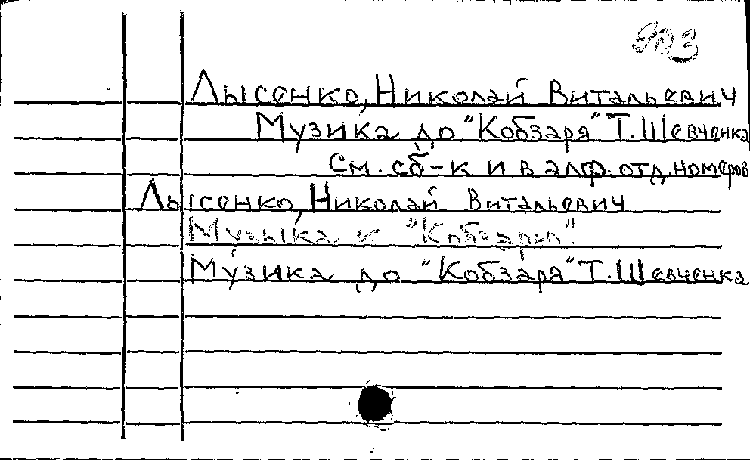 Лысенко, Николай Витальевич
Музика до "Кобзаря" Т. Шевченка
См. сб-к и в алф. отд. номеров
Лысенко, Николай Витальевич
Музыка к "Кобзарю"
Музика до "Кобзаря" Т. Шевченка